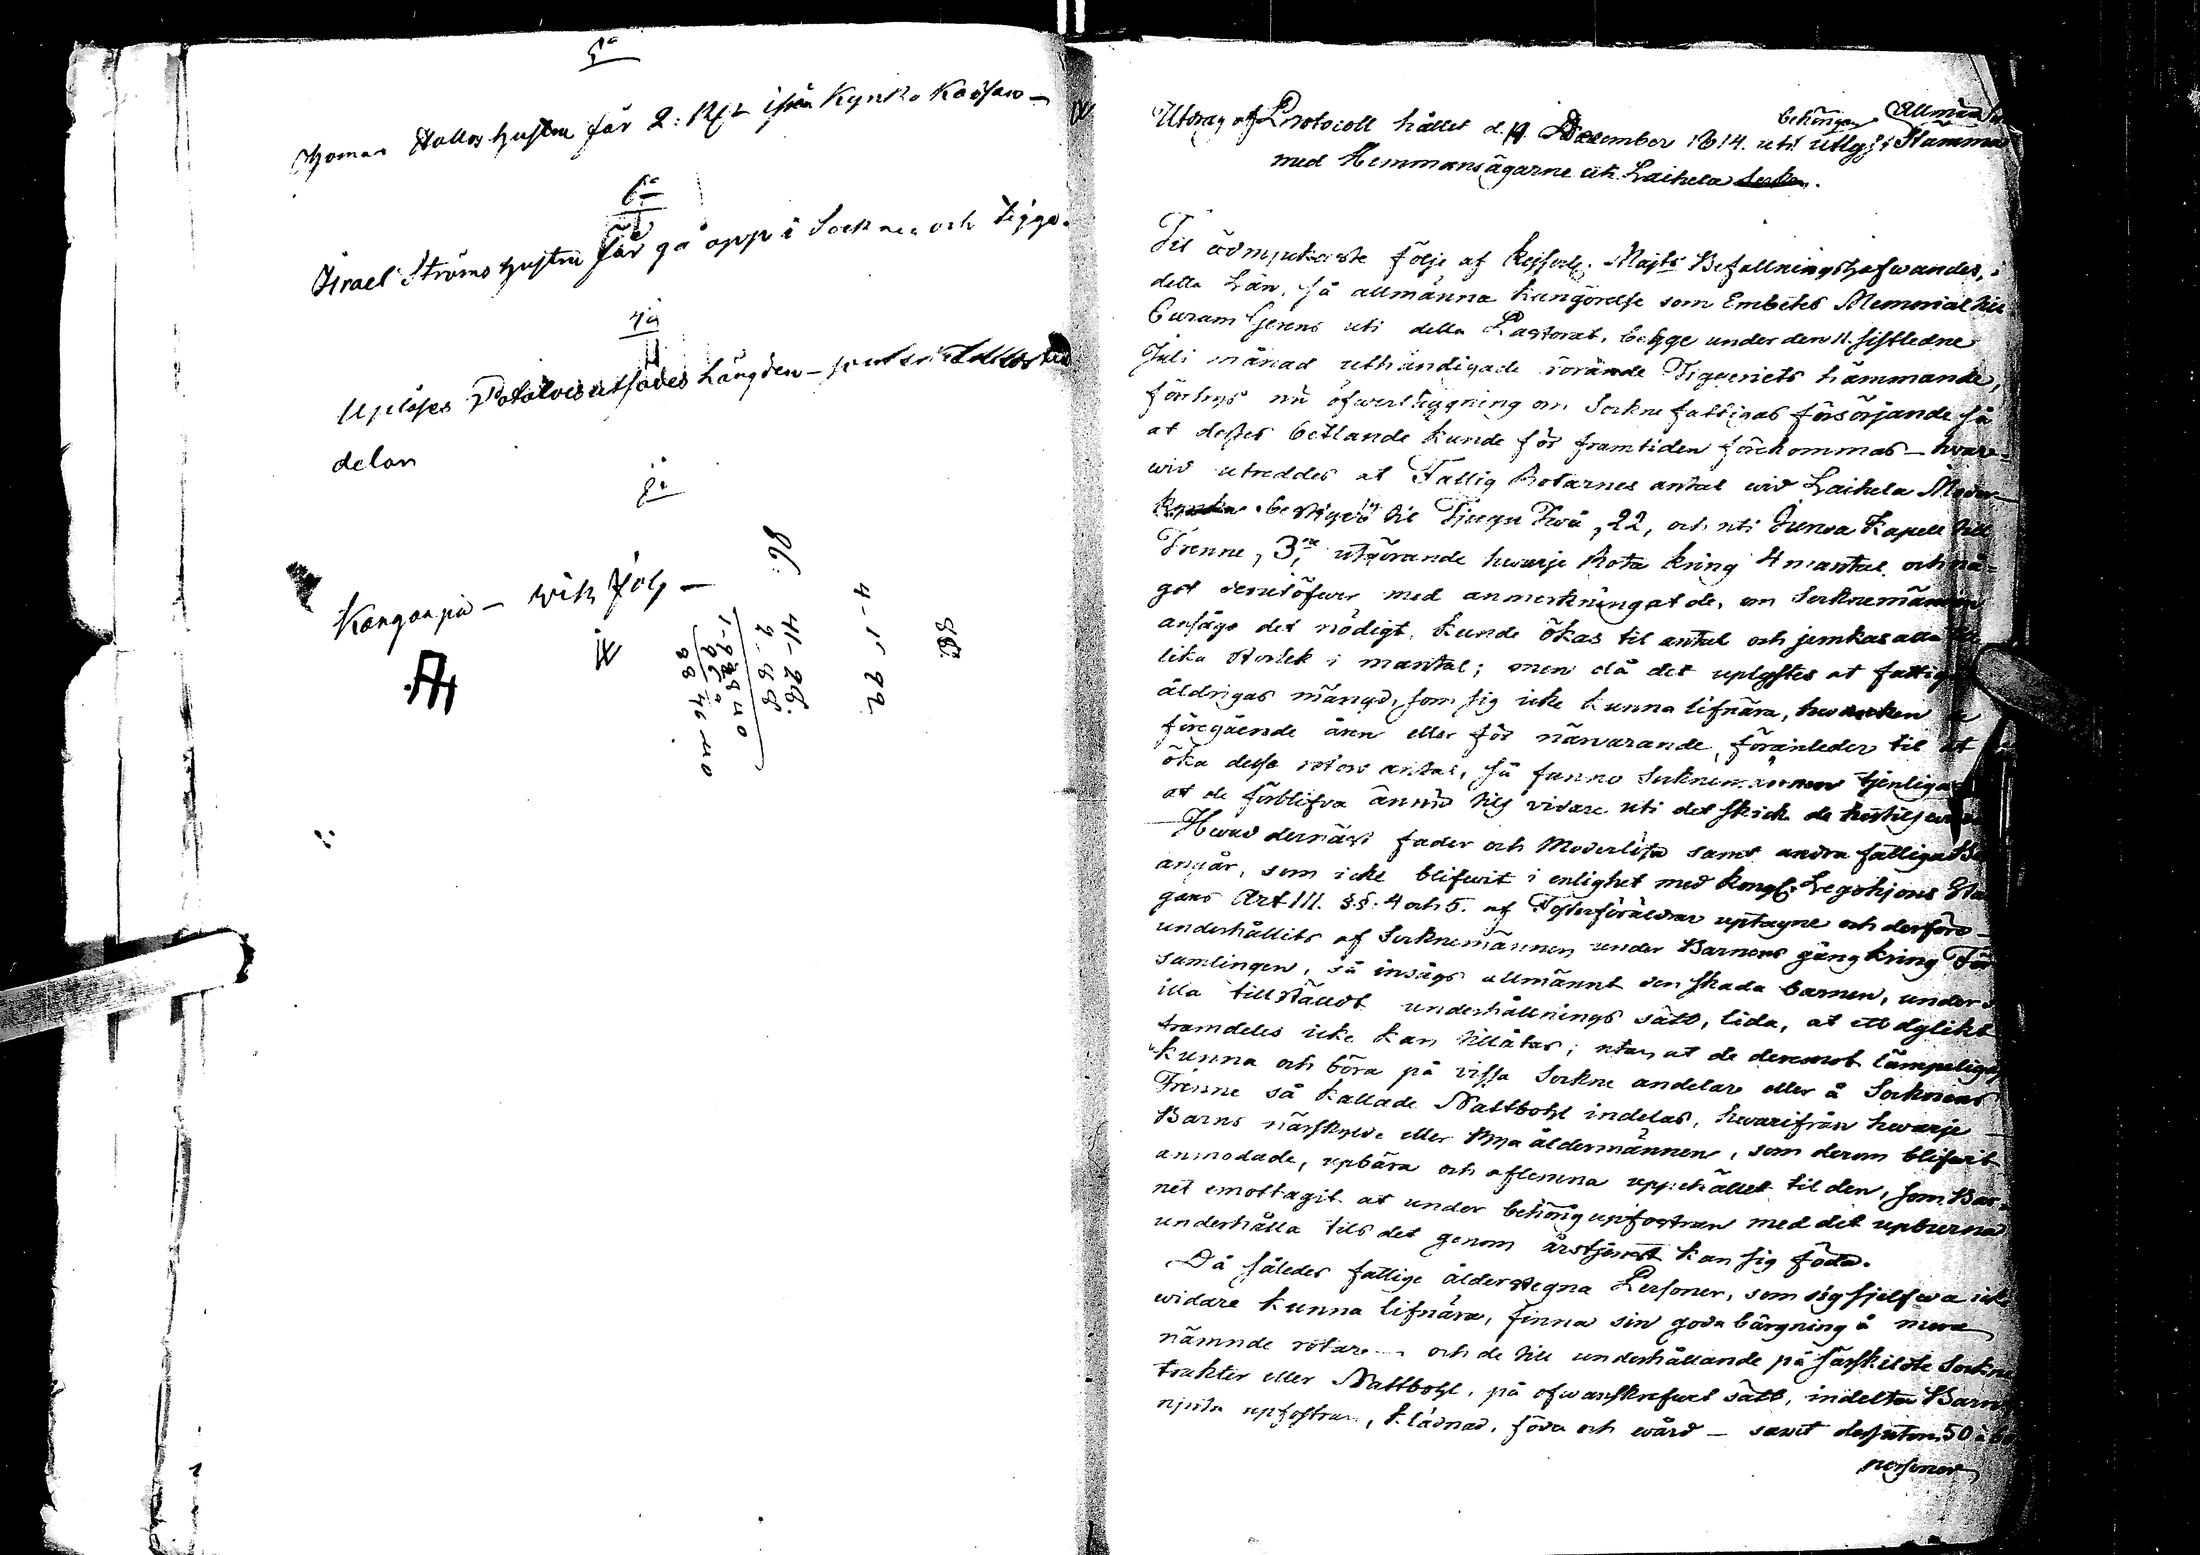 5º
Thomas Hallos hustru får 2: Rbl ifrån Kynko Kassan –
6º
Israel Ströms hustru får gå opp i Socknen och tigga.
7º
Uplästes Potatoes utsädes Längden –
delen
8º
Kangonpä –
86.
41– 28.
4 – 1 92
Utdrag af Protocoll hållet d. December 1814. uti behörigen utlyst Allmän Stämma
med Hemmansägarne uti Laihela Sockn.
Til ödmjukaste följe af Kejserl. Majts Befallningshafwandes, i
detta Län, så allmänna kungörelse som Embetes Memorial till
Curam Gerens uti detta Pastorat, begge under den 11. sistledne
Juli månad uthändigade rörande Tiggeriets hämmande,
företogs nu öfwerläggning om Sockne fattigas försörjande så
at desses betlande kunde för framtiden förekommas – hwar-
wid utreddes at Fattig Rotarnes antal wid Laihela Moder
Kyrka bestiger sig til Tjugu Twå, 22, och uti Jurva Kapell till
Trenne, 3ne, utgörande hwarje Rota kring 4 mantal och nå-
got derutöfwer med anmerkning at de, om Socknemännen
ansågo det nödigt, kunde ökas til antal och jemkas alla till
lika storlek i mantal; men då det uplystes at fattig
åldrigas mängd, som sig icke kunna lifnära, hwarken de
föregående åren eller för närwarande, föranleder til at
öka desse rotors antal, så funno Socknemännen tjenligast
at de förblifva ännu tils vidare uti det skick de hos tils warit
Hwad dernäst fader och Moderlösa samt andra fattiga Ba
angår, som icke blifwit i enlighet med Kongl. Legohjons Sta
gans Art III. §.§. 4 och 5. af Fosterföräldrar uptagne och derföre –
underhållits af Socknemännen under Barnens gång kring För
samlingen, så insågs allmännt den skada barnen, under s
illa tillstäldt underhållnings sätt, lida, at ett dylikt
framdeles icke kan tillåtas; utan at de deremot lämpeligen
kunna och böra på vissa Sockne andelar eller å Socknens
Trenne så kallade Nattbohl indelas, hwarifrån hwarje
Barns närskylde eller Bya åldermännen, som derom blifwit
anmodade, upbära och aflemna uppehället til den, som Bar-
net emottagit at under behörig upfostran med det upburna
underhålla tils det genom årstjenst kan sig föda.
Då således fattige ålderstegna Personer, som sig sjelfwa icke
widare kunna lifnära, finna sin goda bärgning å mera
nämnde rotar – och de till underhållande på särskilde Sockne
trakter eller Nattbohl, på ofwanskrefwet sätt, indelta Barn
njuta upfostran, klädnad, föda och wård – samt dessutom 50 à
personer